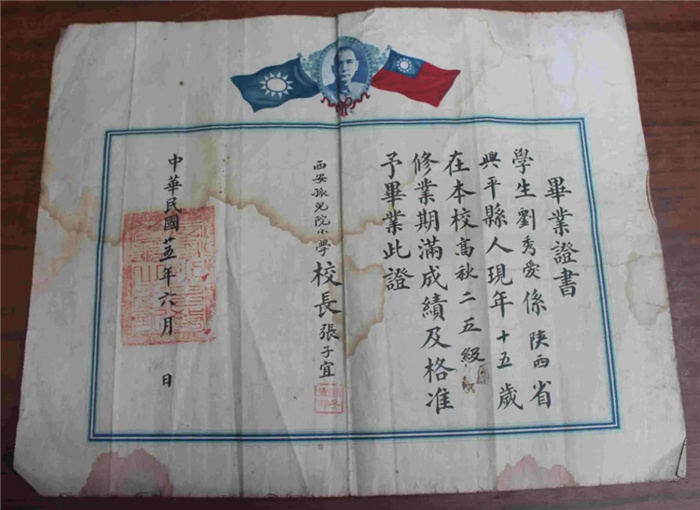 畢業證書
學生劉秀愛係陝西省
興平縣人現年十五歲
在本校高秋二五級
修業期滿成績及格准
予畢業此證
西安孤兒院小學校長張子宜
中華民國廿五年六月　日